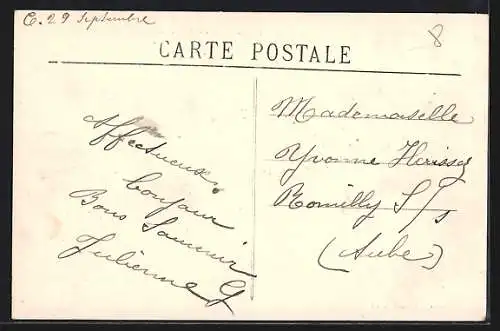 C. 29 Septembre
8
CARTE POSTALE
Affectueux
bonjour
Bons Souvenir
Julienne G
Mademoiselle
Yvonne
Romilly S/s
(Aube)